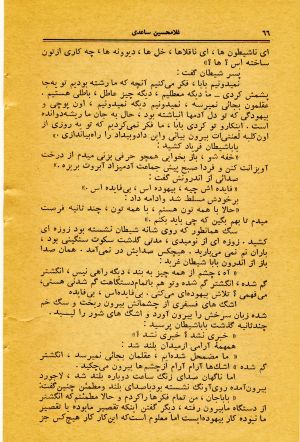 ۶۶ غلامحسین ساعدی
ای ناشیطون ها ، ای ناقلاها ، خل ها ، دیوونه ها ، چه کاری ازتون
ساخته اس آ ها آ»
پسر شیطان گفت :
«نمیدونیم بابا ، فکر می‌کنیم آنچه که ما رشته بودیم تو یه‌جا
پشمش کردی ـ ما دیگه معطلیم ، دیگه چیز عاطل ، باطلی هستیم .
عقلمون بجائی نمیرسه ، نمیدونیم دیگه نمیدونیم ، اون پوچی و
بیهودگی که تو دل آدمها انباشته بود ، حال به جان ما ریشه‌دوانده
است . اینکارو تو کردی بابا ، ما فکر نمی‌کردیم که تو به روزی از
اون‌کله لعنتی‌ات بیرون بیائی و این دادوبیداد را راه‌بیاندازی .»
باباشیطان فریاد کشید :
«خفه شو ، باز بخوابی همجو حرفی بزنی میدم از درخت
آویزانت کنن و فردا صبح پیش جماعت آدمیزاد آبروت بریزه .»
صدائی از اندرونش گفت :
« فایده اش چیه ، بیهوده اس ، بی‌فایده اس .»
برخودش مسلط شد وادامه داد :
«حالا با همه تون هستم ، با همه تون ، چند ثانیه فرصت
میدم تا بهم بگین که چی باید بکنم .»
سگ همانطور که روی شانه شیطان نشسته بود زوزه ای
کشید . زوزه ای از نومیدی ، مدتی گذشت سکوت سنگینی بود ،
باران تم نمی می‌بارید . هیچکس صدایش در نمی‌آمد . همان صدا
باز از اندرون بابا شیطان غرید :
« آه ، چشم از همه چیز به بند ، دیگه راهی نیس ، انگشتر
گم شده ، انگشتر گم شده وتو هم باتمام‌دستگاهت گم شدنی هستی،
می‌فهمی ؟ تلاش بیهوده‌ای می‌کنی ، بی‌فایده‌اس ، بی‌فایده
اشک های فسفری از چشمانش بیرون ریخت و سگ خم
شده زبان سرخش را بیرون آورد و اشک های شور را لیسید .
چندثانیه گذشت باباشیطان پرسید :
« خبری نشد ؟ خبری نشد ؟»
همهمه آرامی ازمیدان بلند شد :
« ما مضمحل شده‌ایم ، عقلمان بجائی نمیرسد ، انگشتر
گم شده ، اشك‌ها آرام آرام ازچشم‌ها بیرون می‌چکید .
اما ناگهان صدای زنگ ساعت دوباره بلند شد ، لاجورد
بیرون‌آمده روی‌آونگ نشسته بودباصدای بلند ومطمئن چنین‌گفت:
« باباجان ، من تمام فکرها راکردم و حالا مطمئنم‌که انگشتر
از دستگاه مابیرون رفته ، دیگر گفتن اینکه تقصیر مابوده یا تقصیر
ما نبوده کار بیهوده‌ایست اما معلوم است‌که این‌کار کار هیچ‌کس جز